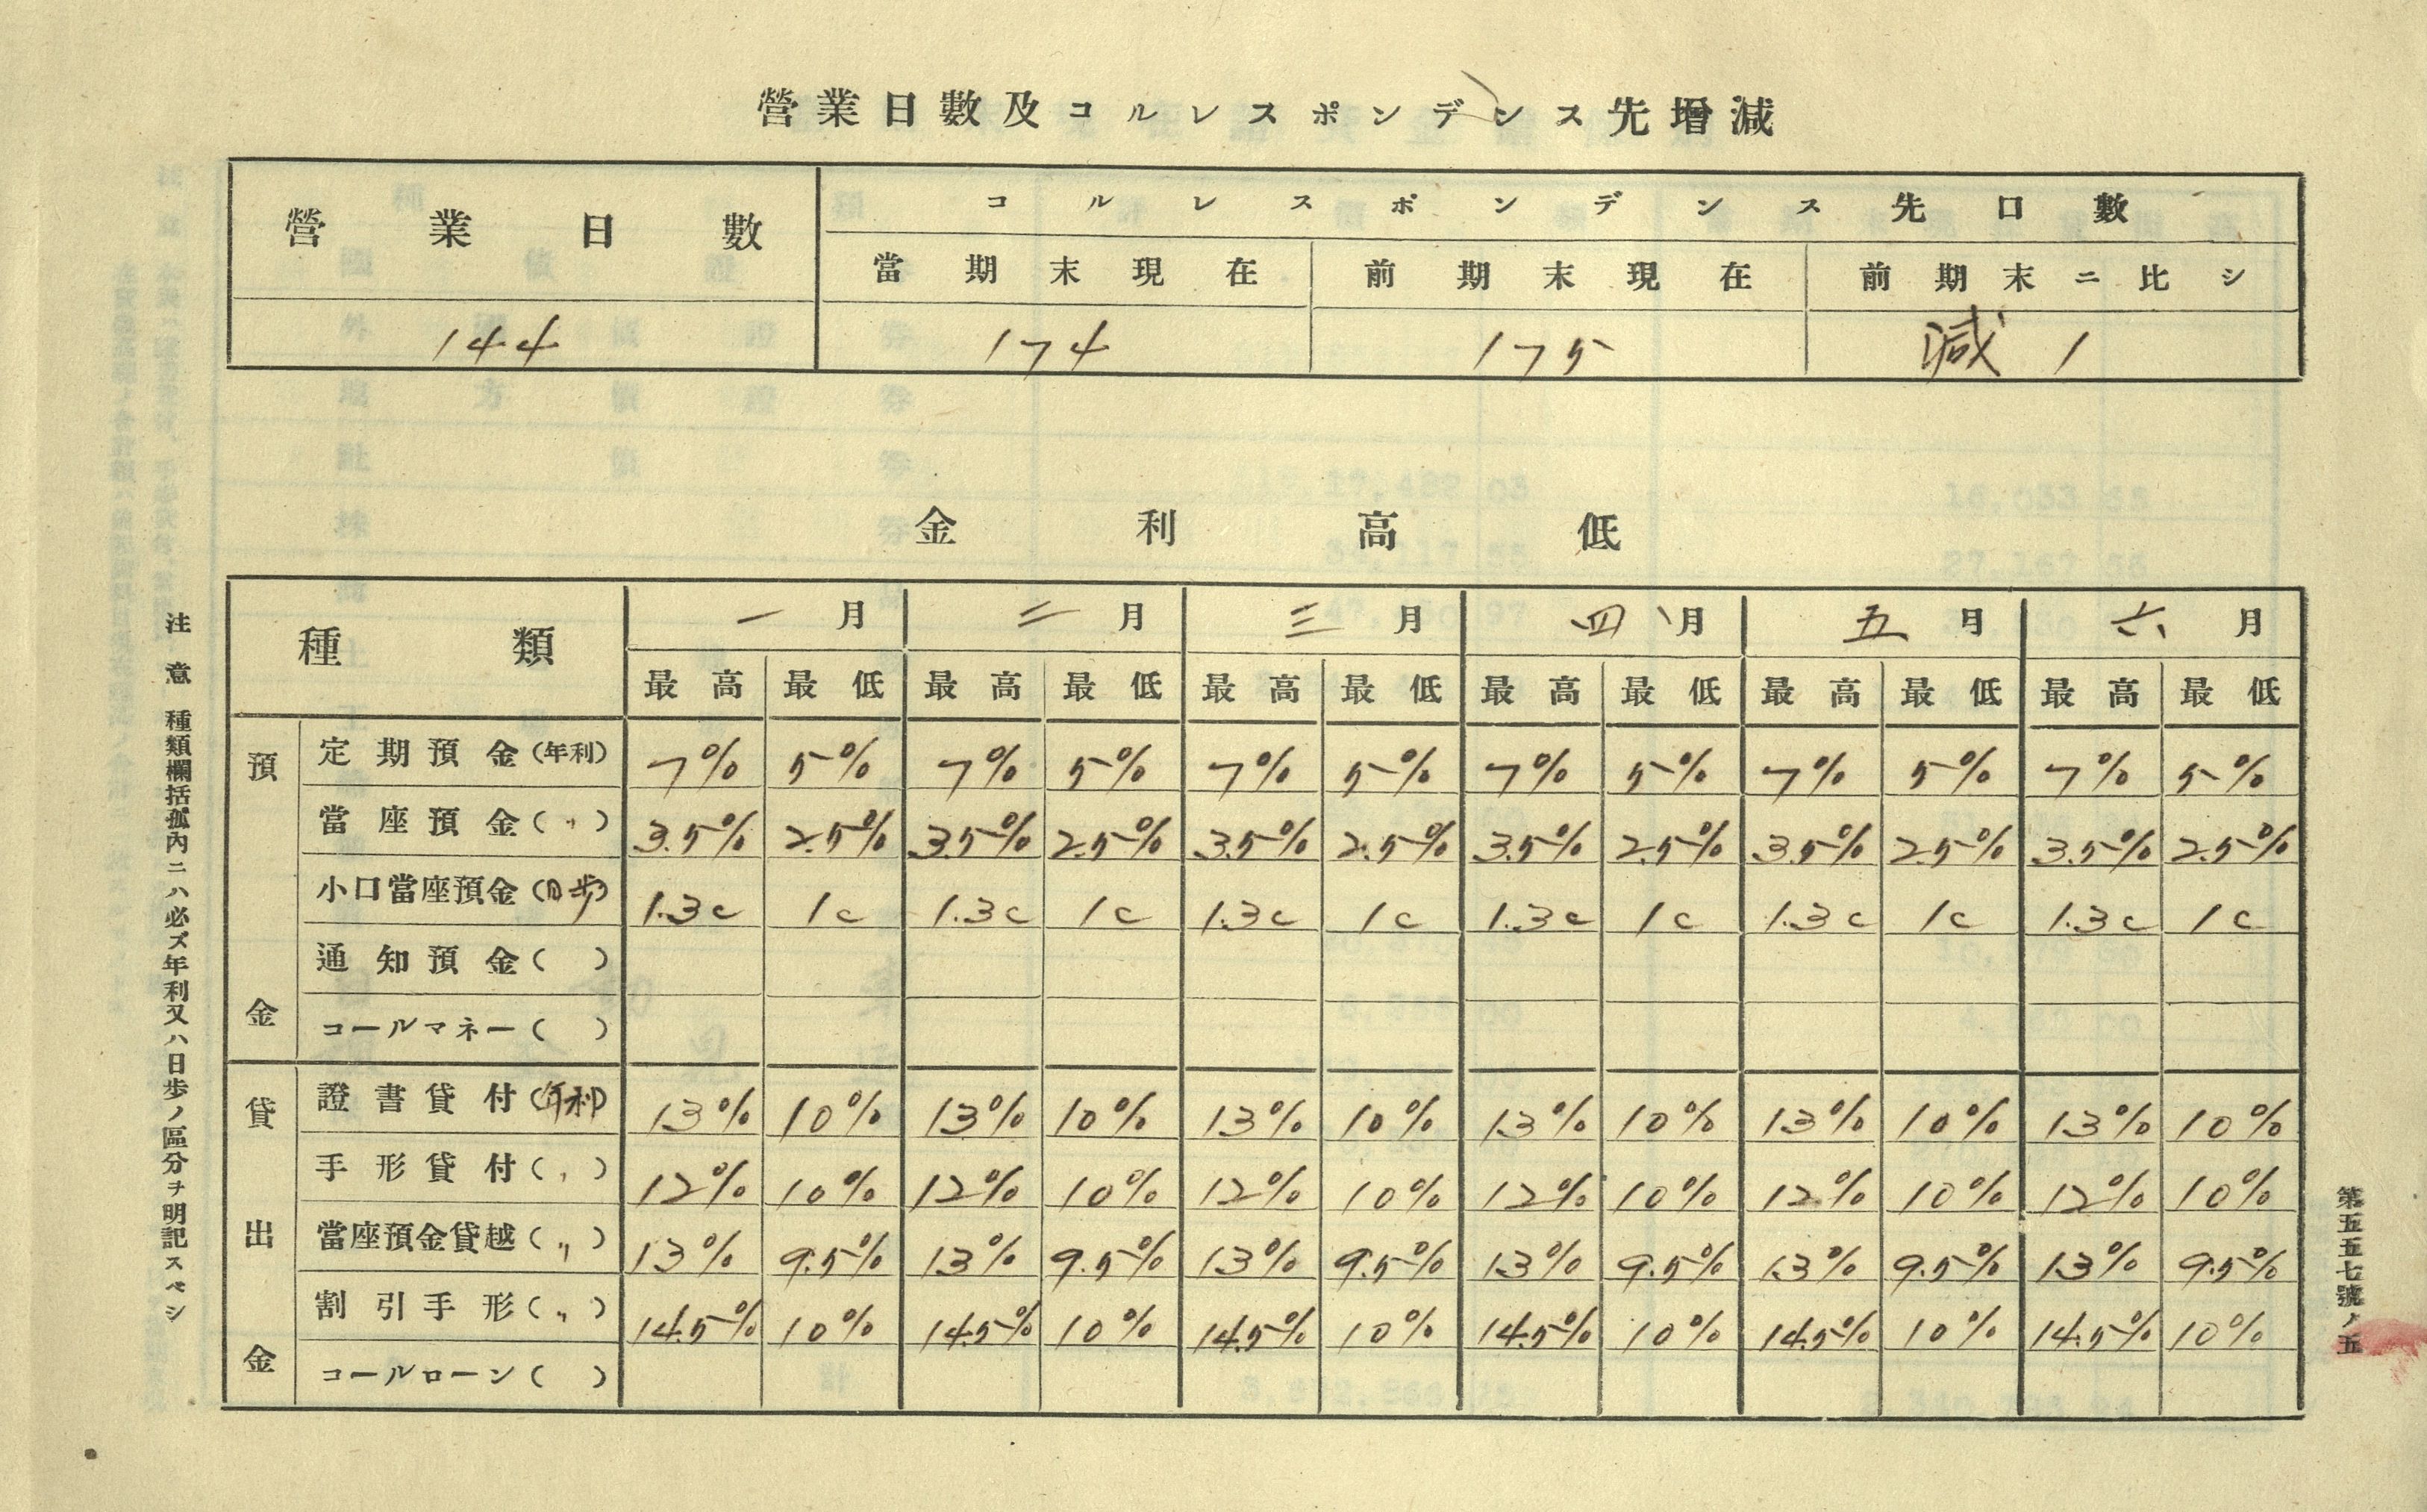 營業日數及コルレスポンデンス先增減
營業日數 コルレスポンデンス先口數
當期末現在 前期末現在 前期末ニ比シ
144 174 175 減 1
金利高低
種類 一月 二月 三月 四月 五月 六月
最高 最低 最高 最低 最高 最低 最高 最低 最高 最低 最高 最低
預金
定期預金(年利) 7% 5% 7% 5% 7% 5% 7% 5% 7% 5% 7% 5%
當座預金(〃) 3.5% 2.5% 3.5% 2.5% 3.5% 2.5% 3.5% 2.5% 3.5% 2.5% 3.5% 2.5%
小口當座預金(日歩) 1.3c 1c 1.3c 1c 1.3c 1c 1.3c 1c 1.3c 1c 1.3c 1c
通知預金( )
コールマネー( )
貸出金
證書貸付(年利) 13% 10% 13% 10% 13% 10% 13% 10% 13% 10% 13% 10%
手形貸付(〃) 12% 10% 12% 10% 12% 10% 12% 10% 12% 10% 12% 10%
當座預金貸越(〃) 13% 9.5% 13% 9.5% 13% 9.5% 13% 9.5% 13% 9.5% 13% 9.5%
割引手形(〃) 14.5% 10% 14.5% 10% 14.5% 10% 14.5% 10% 14.5% 10% 14.5% 10%
コールローン( )
注意 種類欄括孤內ニハ必ズ年利又ハ日歩ノ區分ヲ明記スベシ
第五五五七號ノ五